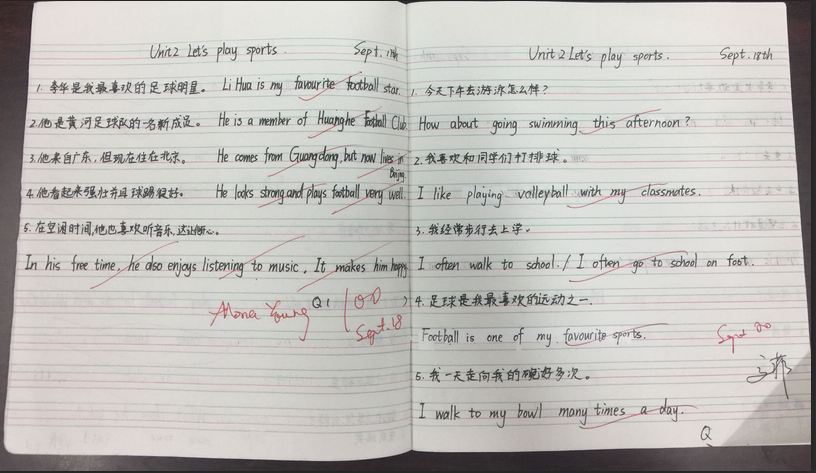 Unit 2 Let's play sports. Sept. 17th
1. 李华是我最喜欢的足球明星。 Li Hua is my favourite football star.
2. 他是黄河足球队的一名新成员。 He is a member of Huanghe Football Club.
3. 他来自广东,但现在住在北京。 He comes from Guangdong, but now lives in
Beijing
4. 他看起来强壮并且球踢很好。 He looks strong and plays football very well.
5. 在空闲时间,他也喜欢听音乐,这让他开心。
In his free time, he also enjoys listening to music. It makes him happy
Mona Young Q1 100
Sept. 18
Unit 2 Let's play sports. Sept. 18th
1. 今天下午去游泳怎么样?
How about going swimming this afternoon?
2. 我喜欢和同学们打排球。
I like playing volleyball with my classmates.
3. 我经常步行去上学。
I often walk to school. / I often go to school on foot.
4. 足球是我最喜欢的运动之一.
Football is one of my favourite sports.
Sept 20
5. 我一天走向我的碗好多次。
I walk to my bowl many times a day.
Q